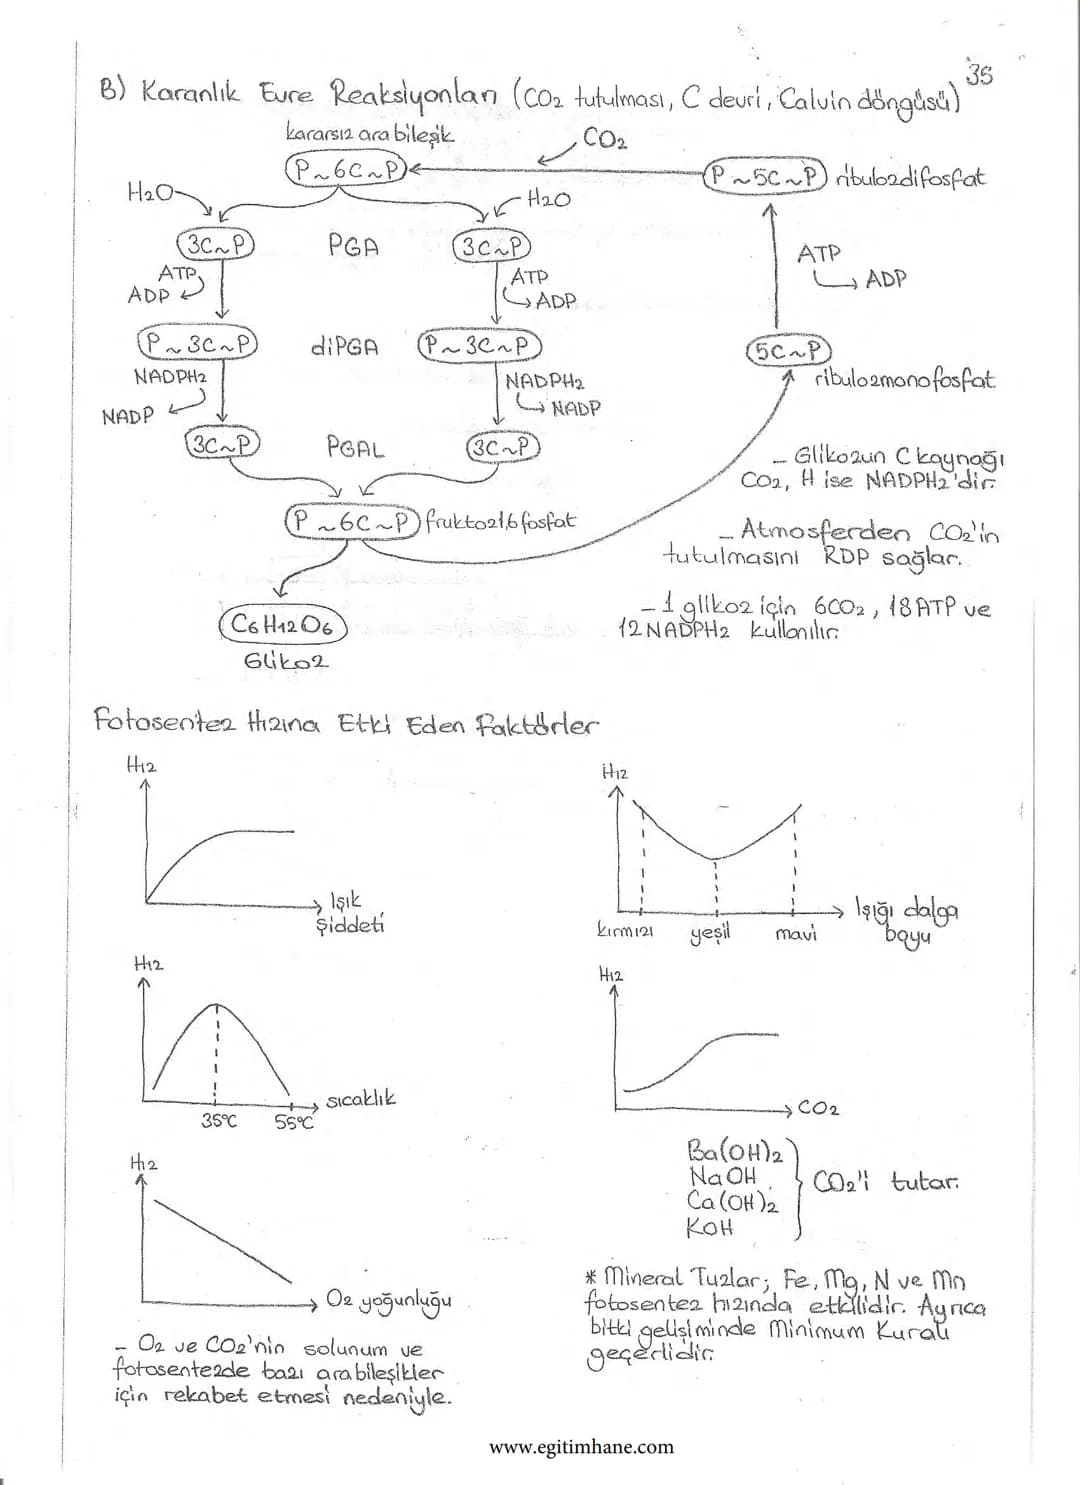 35
B) Karanlık Evre Reaksiyonları (CO2 tutulması, C devri, Calvin döngüsü)
kararsız ara bileşik
CO2
P~6C~P
P~5C~P ribulozdifosfat
H2O
H2O
3C~P PGA 3C~P
ATP
ADP
ATP
ADP
ATP
ADP
P~3C~P diPGA P~3C~P
5C~P
ribulozmonofosfat
NADPH2
NADP
NADPH2
NADP
3C~P PGAL 3C~P
- Glikozun C kaynağı
CO2, H ise NADPH2'dir.
P~6C~P fruktoz1,6fosfat
- Atmosferden CO2'in
tutulmasını RDP sağlar.
- 1 glikoz için 6CO2, 18ATP ve
12NADPH2 kullanılır.
C6H12O6
Glikoz
Fotosentez Hızına Etki Eden Faktörler
Hız
Işık
şiddeti
Hız
kırmızı yeşil mavi
Işığı dalga
boyu
Hız
35°C 55°C
sıcaklık
Hız
CO2
Ba(OH)2
NaOH
Ca(OH)2
KOH
CO2'i tutar.
Hız
O2 yoğunluğu
- O2 ve CO2'nin solunum ve
fotosentezde bazı arabileşikler
için rekabet etmesi nedeniyle.
* Mineral Tuzlar; Fe, Mg, N ve Mn
fotosentez hızında etkilidir. Ayrıca
bitki gelişiminde Minimum Kuralı
geçerlidir.
www.egitimhane.com